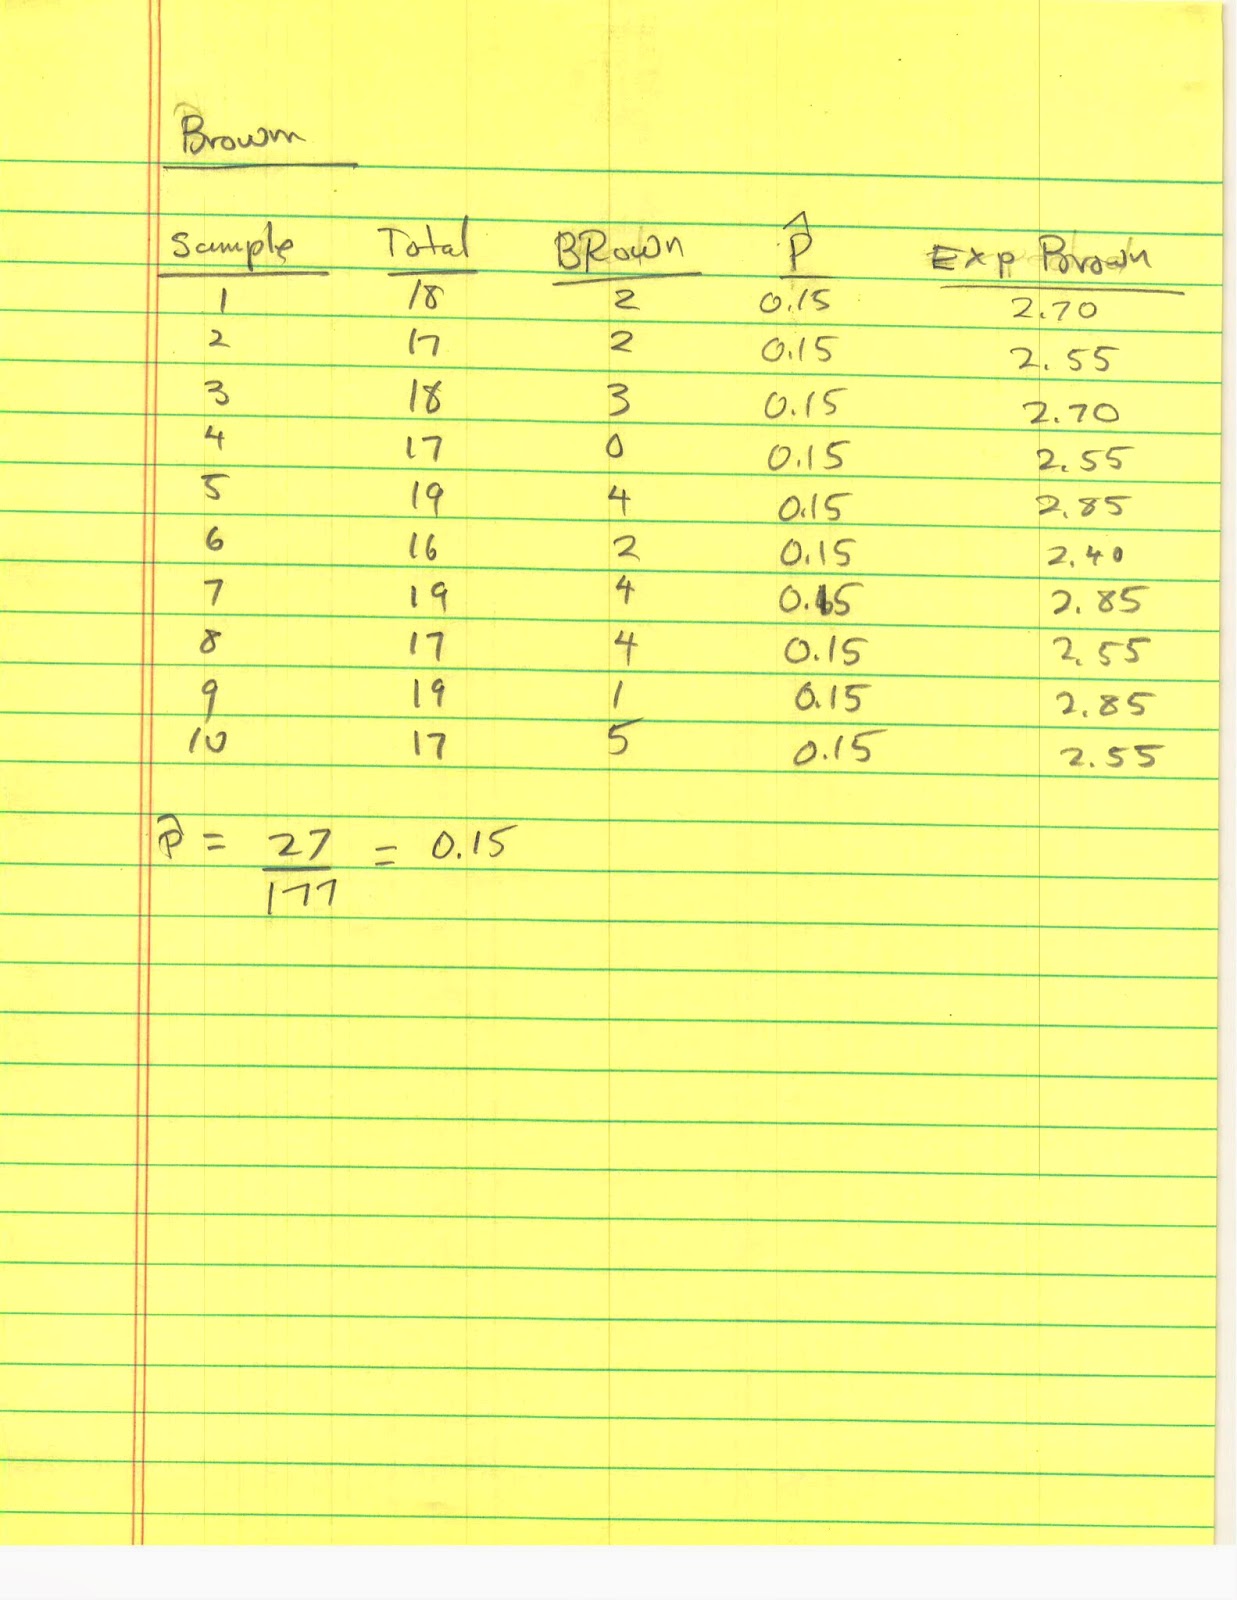 Brown
Sample Total BRown P̂ Exp Brown
1 18 2 0.15 2.70
2 17 2 0.15 2.55
3 18 3 0.15 2.70
4 17 0 0.15 2.55
5 19 4 0.15 2.85
6 16 2 0.15 2.40
7 19 4 0.15 2.85
8 17 4 0.15 2.55
9 19 1 0.15 2.85
10 17 5 0.15 2.55
p̂ = 27/177 = 0.15